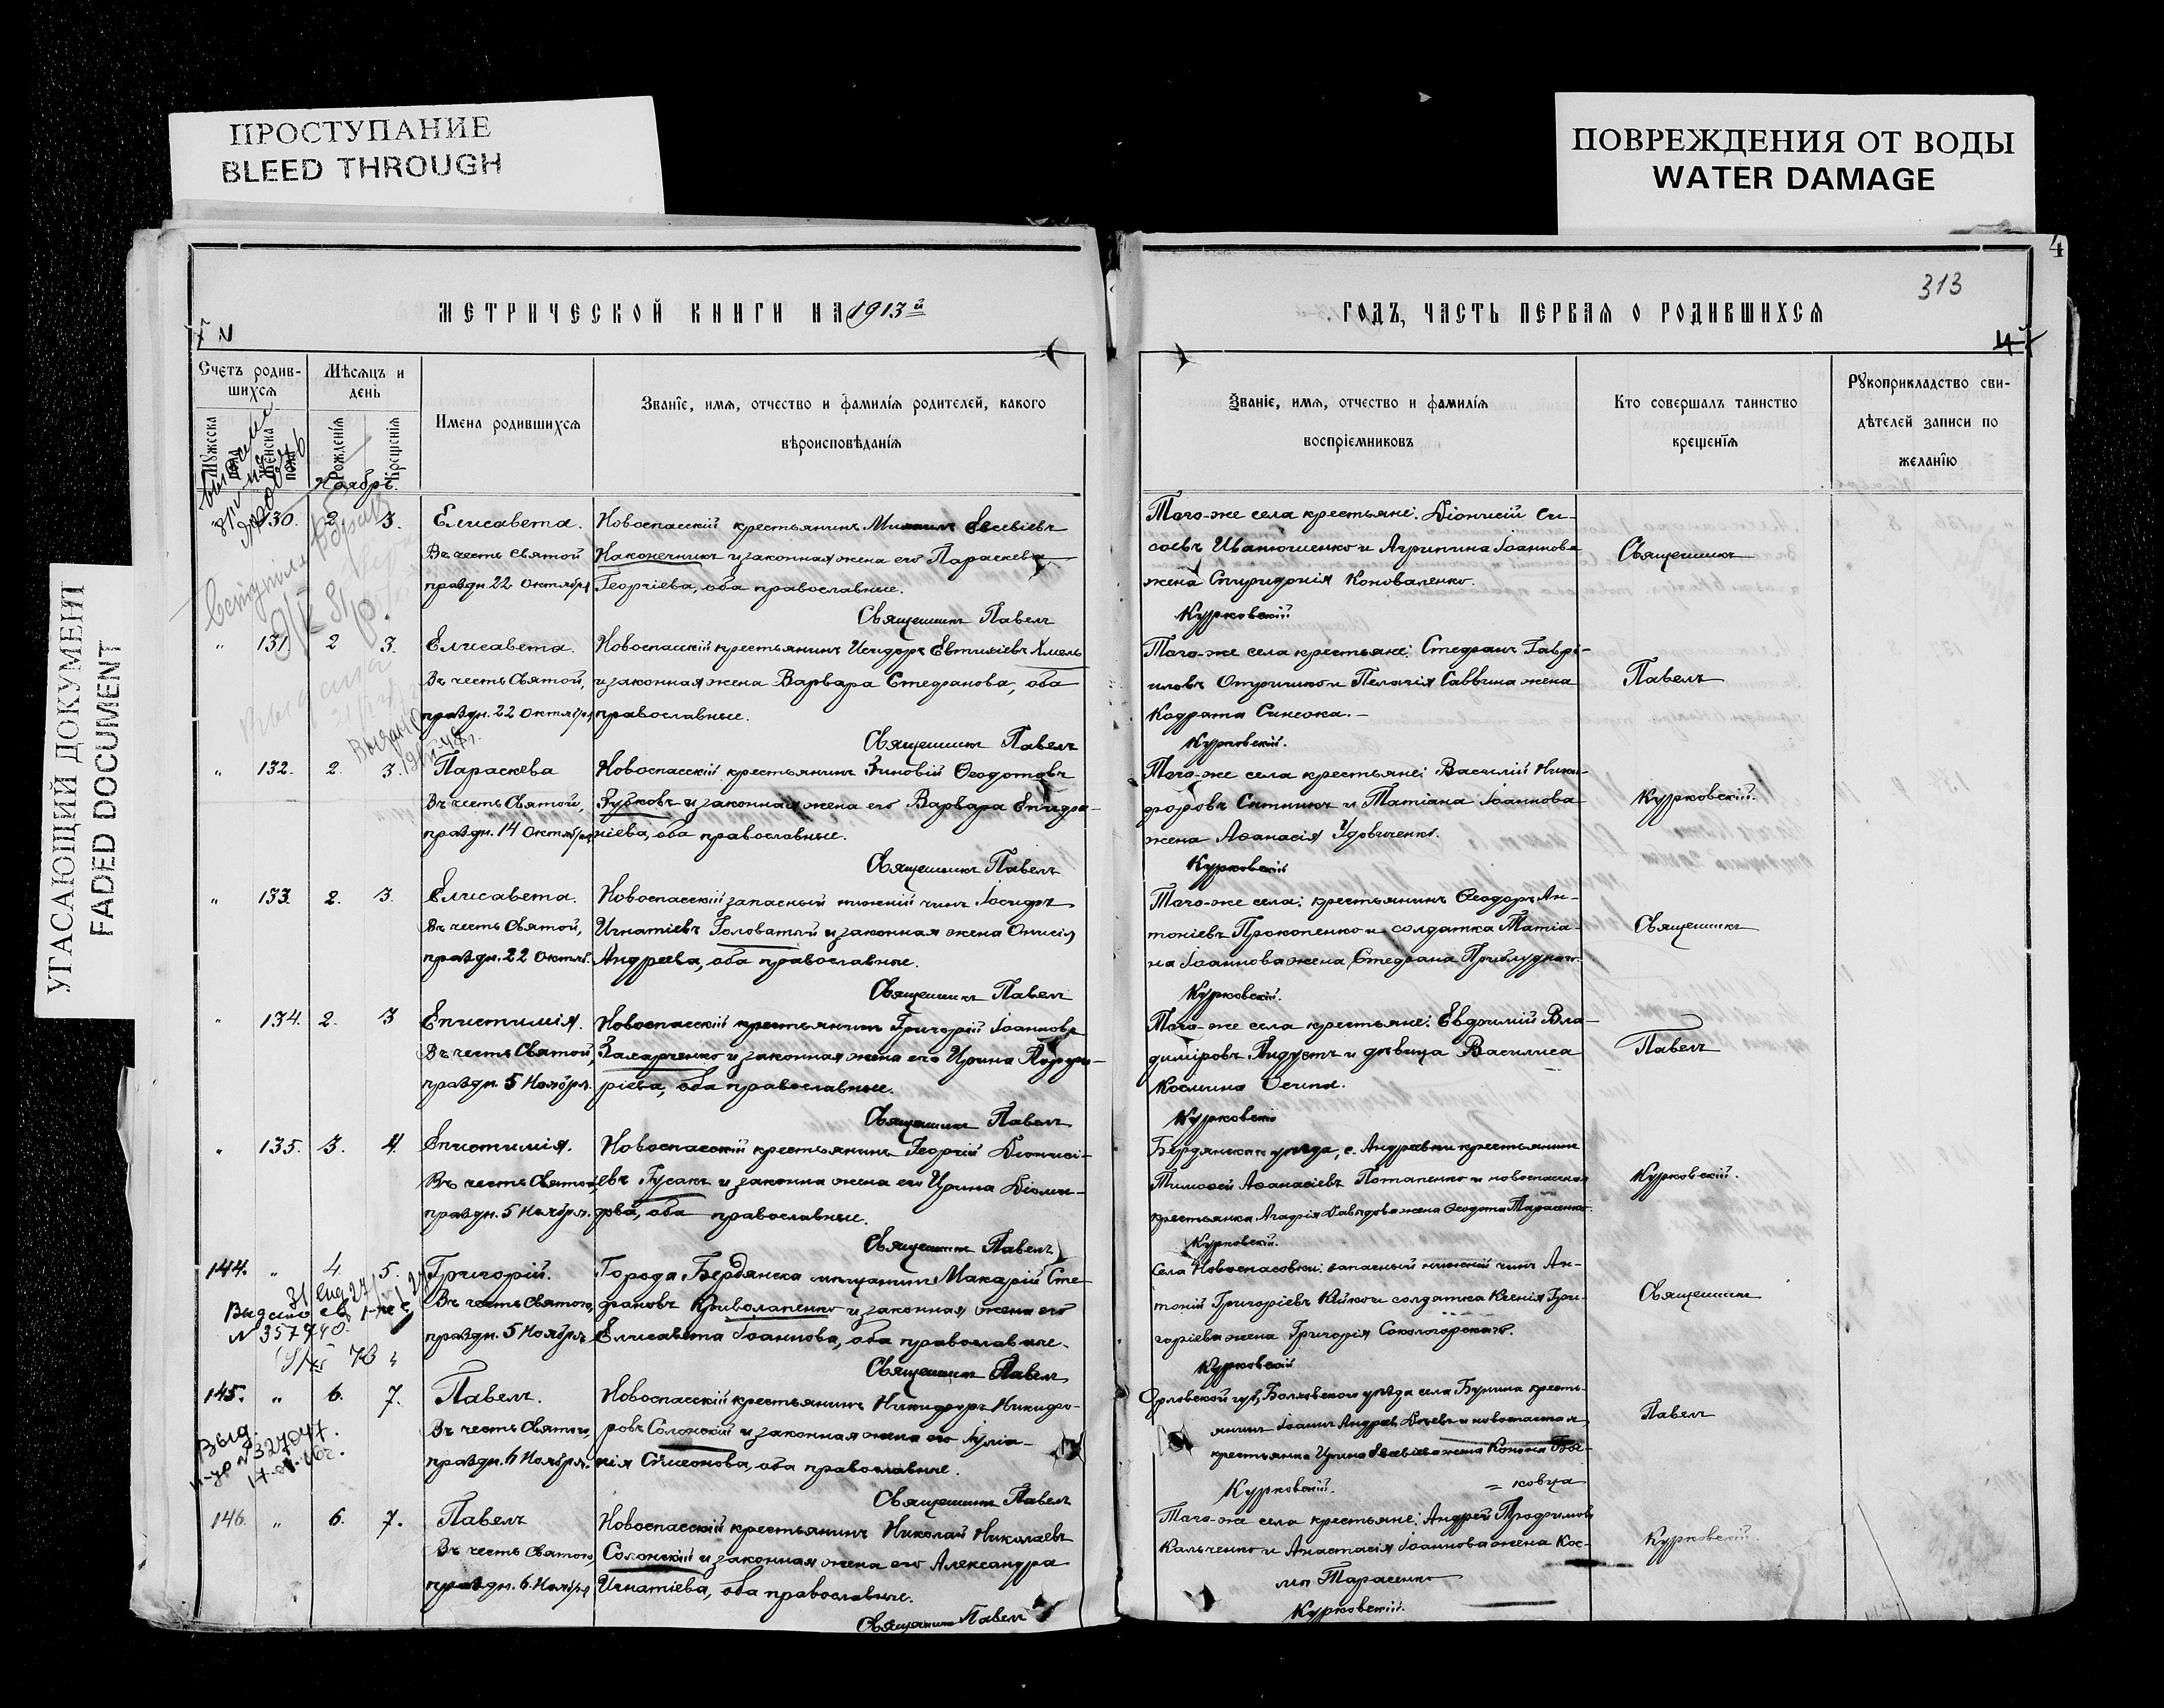 ПРОСТУПАНИЕ
BLEED THROUGH
ПОВРЕЖДЕНИЯ ОТ ВОДЫ
WATER DAMAGE
УГАСАЮЩИЙ ДОКУМЕНТ
FADED DOCUMENT
4
313
МЕТРИЧЕСКОЙ КНИГИ НА 1913й
ГОДЪ, ЧАСТЬ ПЕРВАЯ О РОДИВШИХСЯ
Счетъ родив-
шихся
Мѣсяцъ и
день
Мужеска
пола
Женска
пола
Рожденія
Крещенія
Имена родившихся
Званіе, имя, отчество и фамилія родителей, какого
вѣроисповѣданія
Званіе, имя, отчество и фамилія
воспріемниковъ
Кто совершалъ таинство
крещенія
Рукоприкладство сви-
дѣтелей записи по
желанію
Ноябрь.
130. 2. 3. Елисавета. Новоспасскій крестьянинъ Евсевіевъ
Въ честь Святой Наконечникъ и законная жена его Параскева
праздн. 22 Октября Георгіева, оба православные.
Священникъ Павелъ
Того-же села крестьяне: Діонисій Си-
соевъ Иванющенко и Агрипина Іоаннова
жена Спиридонія Коноваленко.
Курковскій
Священникъ
" 131 2 3. Елисавета. Новоспасскій крестьянинъ Исидоръ Евтихіевъ Хмель
Въ честь Святой, и законная жена Варвара Стефанова, оба
праздн. 22 Октября православные.
Священникъ Павелъ
Того-же села крестьяне: Стефанъ Гаврі-
иловъ и Пелагія Саввина жена
Кодрата Синеока.
Курковскій.
Павелъ
" 132. 2. 3. Параскева Новоспасскій крестьянинъ Зиновій Ѳеодотовъ
Въ честь Святой, Зубковъ и законная жена его Варвара Епифа-
праздн. 14 Октября ніева, оба православные.
Священникъ Павелъ
Того-же села крестьяне: Василій Ники-
форовъ Ситникъ и Татіана Іоаннова
жена Аѳанасія Удовиченко.
Курковскій
Курковскій.
" 133. 2. 3. Елисавета. Новоспасскій запасный нижній чинъ Іосифъ
Въ честь Святой, Игнатіевъ Головатый и законная жена Онисія
праздн. 22 Октяб. Андреева, оба православные.
Священникъ Павелъ
Того-же села: крестьянинъ Ѳеодоръ Ан-
тоніевъ Прокопенко и солдатка Татіа-
на Іоаннова жена Стефана Приблуднаго.
Курковскій.
Священникъ
" 134. 2. 3 Епистимія. Новоспасскій крестьянинъ Григорій Іоанновъ
Въ честь Святой, Захарченко и законная жена его Ирина Порфи-
праздн. 5 Ноября. ріева, оба православные.
Священникъ Павелъ
Того-же села крестьяне: Евдокимій Вла-
диміровъ и дѣвица Василиса
Космина
Курковскій
Павелъ
" 135. 3. 4. Епистимія. Новоспасскій крестьянинъ Георгій Діонисі-
Въ честь Святой, евъ Гусакъ и законна жена его Ирина Діоми-
праздн. 5 Ноября. дова, оба православные.
Священникъ Павелъ
Бердянскаго уѣзда, с. Андреевки крестьянинъ
Тимоѳей Аѳанасіевъ Потапенко и новоспасская
крестьянка Агафія Давыдова жена Ѳеодота Тарасенко.
Курковскій.
Курковскій.
144. " 4 5. Григорій. Города Бердянска мѣщанинъ Макарій Сте-
Въ честь Святого, фановъ Криволапенко и законная жена его
праздн. 5 Ноября Елисавета Іоаннова, оба православные.
Священникъ Павелъ
Села Новоспасовки: запасный нижній чинъ Ан-
тоній Григоріевъ и солдатка Ксенія Гри-
горіева жена Григорія Сокологорскаго.
Курковскій
Священникъ
№ 357740.
145. " 6. 7. Павелъ. Новоспасскій крестьянинъ Никифоръ Никифо-
Въ честь Святого, ровъ Солонскій и законная жена его Іуліа-
праздн. 6 Ноября. нія Симеонова, оба православные.
Священникъ Павелъ
Орловской губ, Болховского уѣзда села Бунина кресть-
янинъ Іоаннъ Андреевъ и новоспасская
крестьянка Ирина Евсевіева жена Конона
= ковца
Курковскій.
Павелъ
Выд.
№327047.
146. " 6. 7. Павелъ Новоспасскій крестьянинъ Николай Николаевъ
Въ честь Святого, Солонскій и законная жена его Александра
праздн. 6. Ноября Игнатіева, оба православные.
Священникъ Павелъ
Того-же села крестьяне: Андрей Трофимовъ
Кальченко и Анастасія Іоаннова жена Кос-
мы Тарасенко
Курковскій.
Курковскій